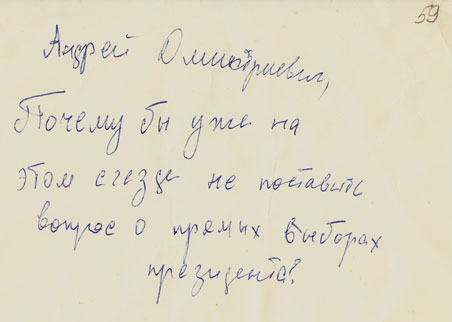 59
Андрей Дмитриевич,
Почему бы уже на
этом съезде не поставить
вопрос о прямых выборах
президента?